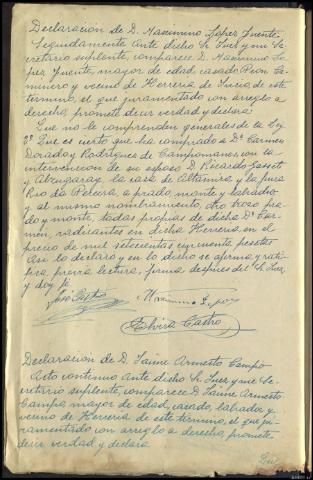 Declaracion de D. Maximino Lopez Puente
Seguidamente ante dicho Sr Juez y mi Se-
cretario suplente, comparece D. Maximino Lo-
pez Puente, mayor de edad casado Peon Ca-
minero y vecino de Herreria de Incio, de este
termino, el que juramentado con arreglo a
derecho, promete decir verdad y declara:
Que no le comprenden generales de la Ley
2º Que es cierto que ha comprado a Dª Carmen
Dorado y Rodriguez de Campomanes con la
intervencion de su esposo D. Ricardo Gasset
y Alzugaray, la casa de Altamira, y la finca
Rio da Pereira, a prado, monte y labradio
y al mismo nombramiento, otro trozo pra-
do y monte, todas propias de dicha Dª Car-
men, radicantes en dicha Herreria, en el
precio de mil setecientas cincuenta pesetas
Asi lo declaro y en lo dicho se afirma y rati-
fica, previa lectura, firma despues del Sr Juez,
y doy fe
José Castro Maximino Lopez
Castro
Declaracion de D. Jaime Armesto Campo
Acto continuo ante dicho Sr Juez y mi Se-
cretario suplente, comparece D. Jaime Armesto
Campo, mayor de edad, casado, labrador y
vecino de Herreria de este termino, el que ju-
ramentado con arreglo a derecho, promete
decir verdad y declara